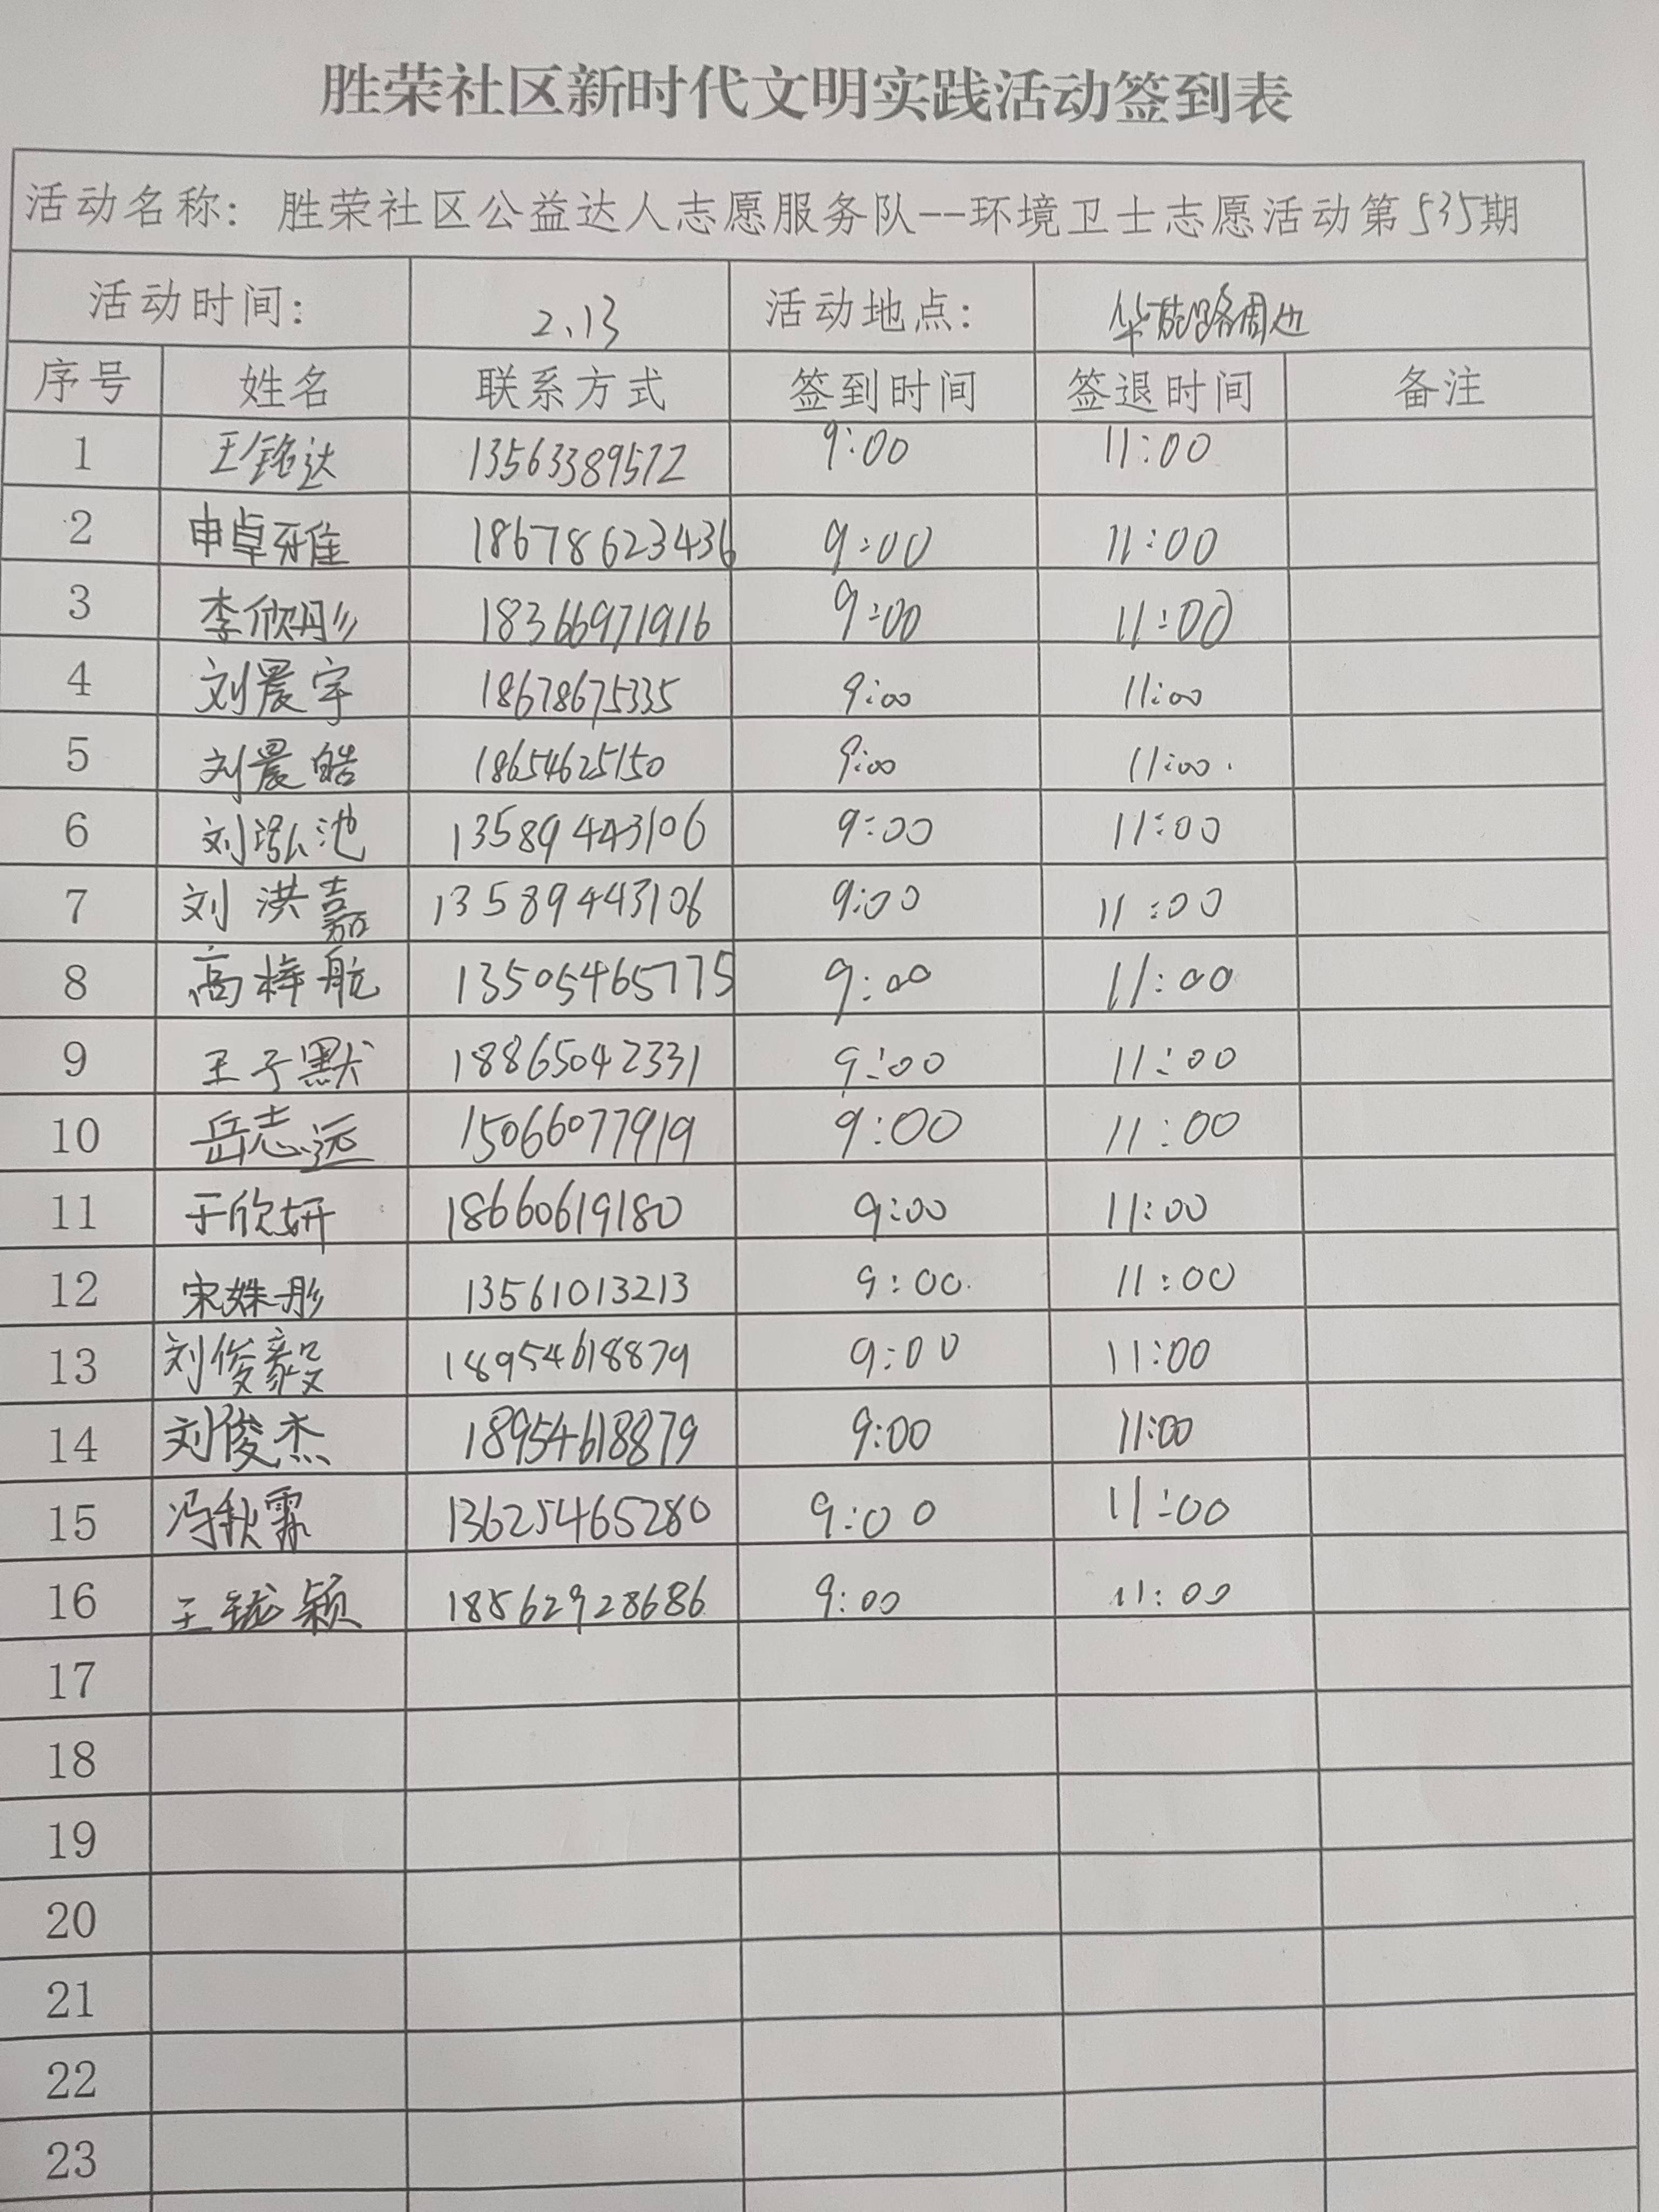 胜荣社区新时代文明实践活动签到表
活动名称：胜荣社区公益达人志愿服务队--环境卫士志愿活动第535期
活动时间： 2.13 活动地点： 路周边
序号 姓名 联系方式 签到时间 签退时间 备注
1 王铭达 13563389572 9:00 11:00
2 申卓雅 18678623436 9:00 11:00
3 李欣彤 18366971916 9:00 11:00
4 刘晨宇 18678675335 9:00 11:00
5 刘晨皓 18654625150 9:00 11:00
6 刘泓池 13589443106 9:00 11:00
7 刘洪嘉 13589443106 9:00 11:00
8 高梓航 13505465775 9:00 11:00
9 王子默 18865042331 9:00 11:00
10 岳志远 15066077919 9:00 11:00
11 于欣妍 18660619180 9:00 11:00
12 宋姝彤 13561013213 9:00 11:00
13 刘俊毅 18954618879 9:00 11:00
14 刘俊杰 18954618879 9:00 11:00
15 冯秋霖 13625465280 9:00 11:00
16 王颖 18562928686 9:00 11:00
17
18
19
20
21
22
23